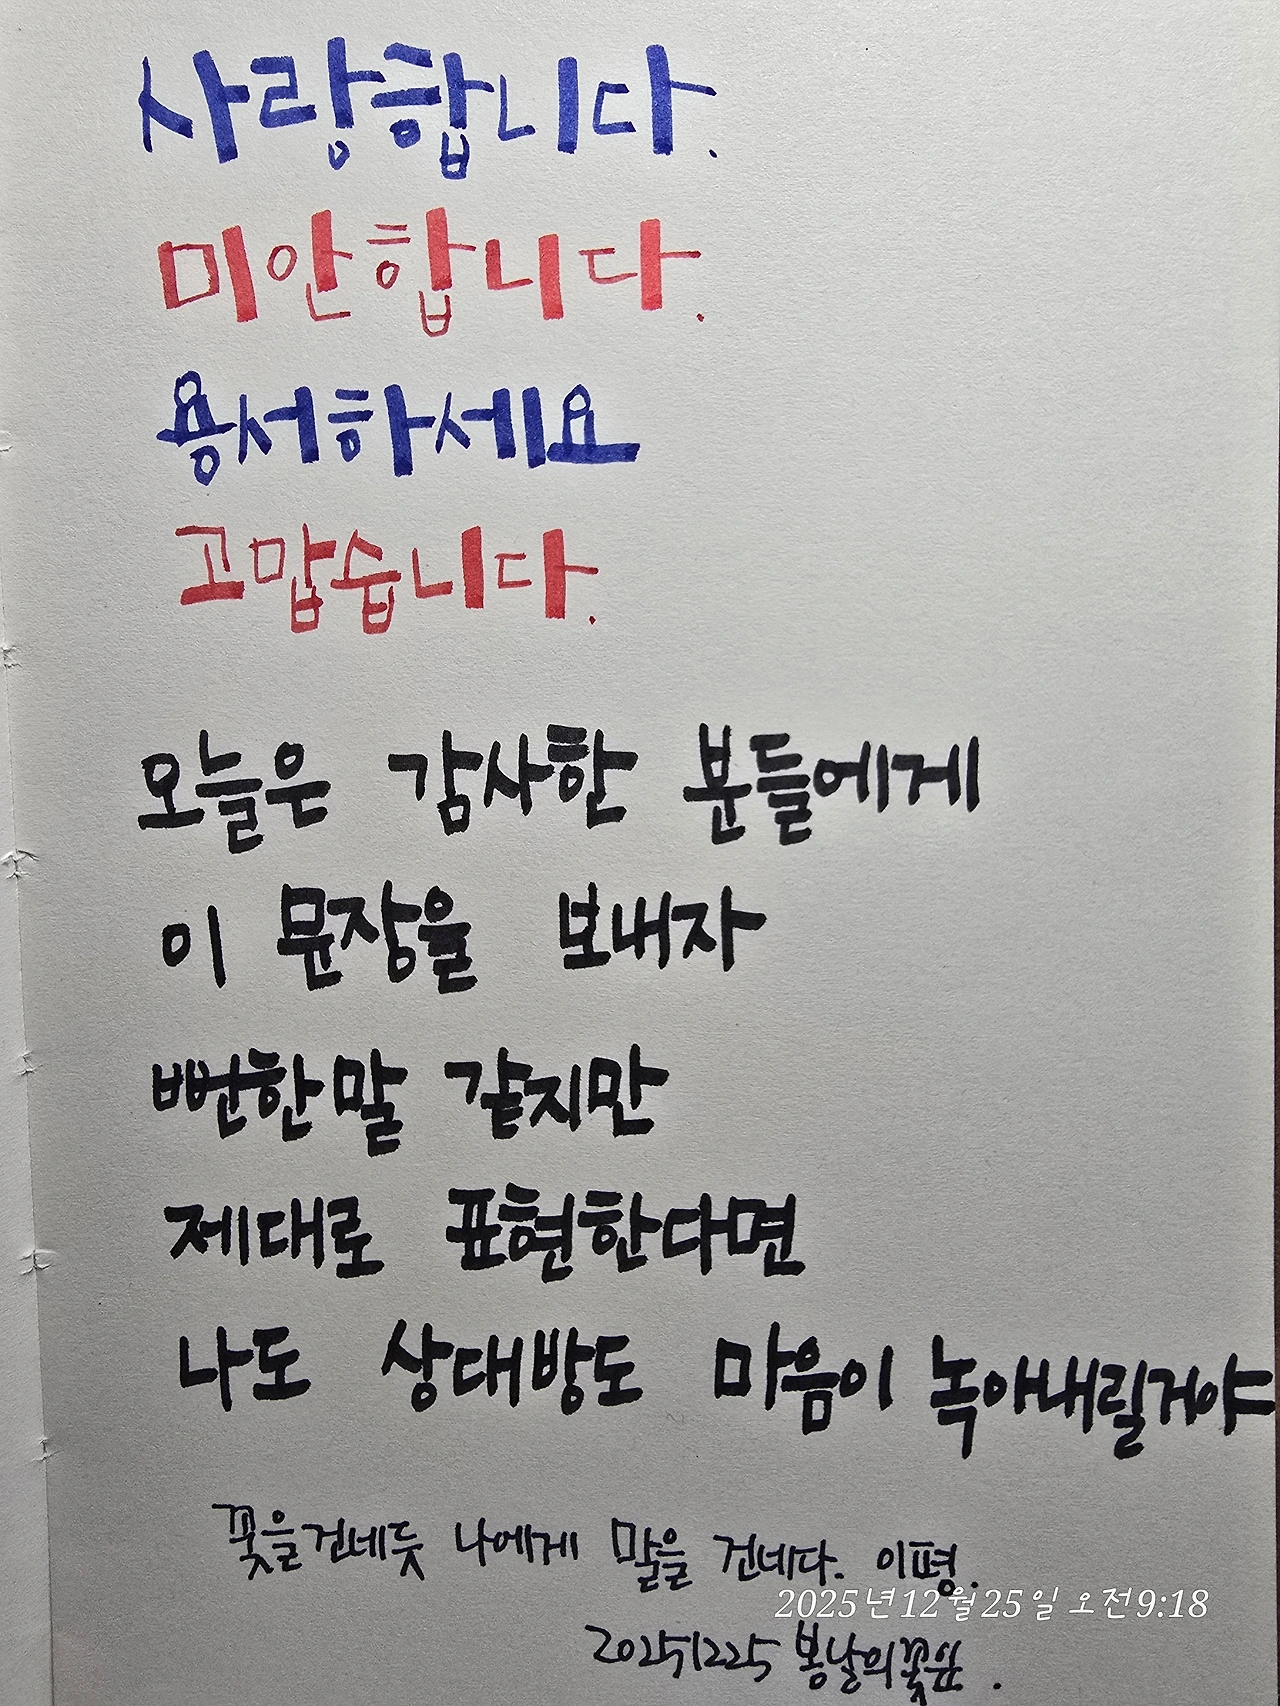 사랑합니다.
미안합니다.
용서하세요
고맙습니다.
오늘은 감사한 분들에게
이 문장을 보내자
뻔한말 같지만
제대로 표현한다면
나도 상대방도 마음이 녹아내릴거야
꽃을건네듯 나에게 말을 건네다. 이평.
2025년 12월 25일 오전 9:18
20251225 봄날의꽃잎.